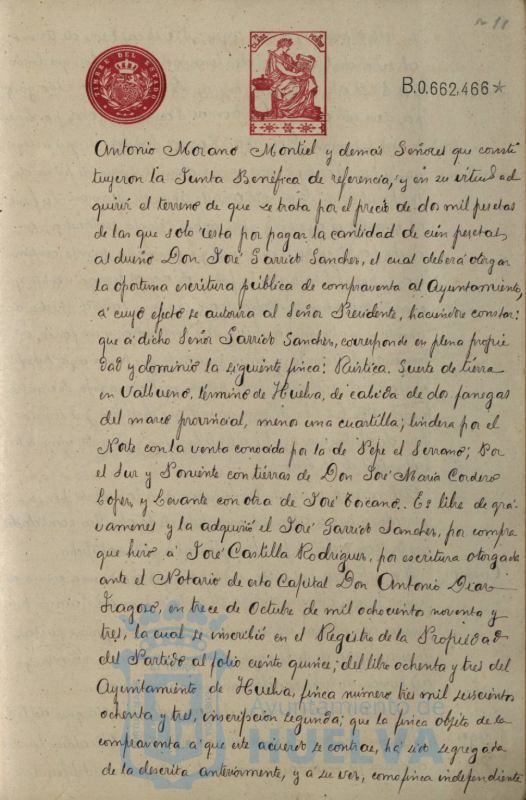 nº 11
TIMBRE DEL ESTADO
B.0.662,466
Antonio Morano Montiel y demás Señores que consti
tuyeron la Junta Benéfica de referencia, y en su virtud ad
quirir el terreno de que se trata por el precio de dos mil pesetas
de las que solo resta por pagar la cantidad de cién pesetas,
al dueño Don José Garrido Sanchez, el cual deberá otorgar
la oportuna escritura pública de compraventa al Ayuntamiento,
á cuyo efecto se autoriza al Señor Presidente, haciendose constar:
que á dicho Señor Garrido Sanchez, corresponde en plena propie
dad y dominio la siguiente finca: Rústica. Suerte de tierra
en Valbueno, término de Huelva, de cabida de dos fanegas
del marco provincial, menos una cuartilla; lindera por el
Norte con la venta conocida por la de Pepe el Serrano; Por
el Sur y Poniente con tierras de Don José Maria Cordero
Lopez, y Levante con otra de José Toscano. Es libre de gra-
vamenes y la adquirió el José Garrido Sanchez, por compra
que hizo á José Castilla Rodriguez, por escritura otorgada
ante el Notario de esta Capital Don Antonio Diaz
Fragoso, en trece de Octubre de mil ochocientos noventa y
tres, la cual se inscribió en el Registro de la Propiedad
del Partido al folio ciento quince, del libro ochenta y tres del
Ayuntamiento de Huelva, finca número tres mil seiscientos
ochenta y tres, inscripción segunda; que la finca objeto de la
compraventa á que este acuerdo se contrae, ha sido segregada
de la descrita anteriormente, y á su vez, como finca independiente
Ayuntamiento de
HUELVA